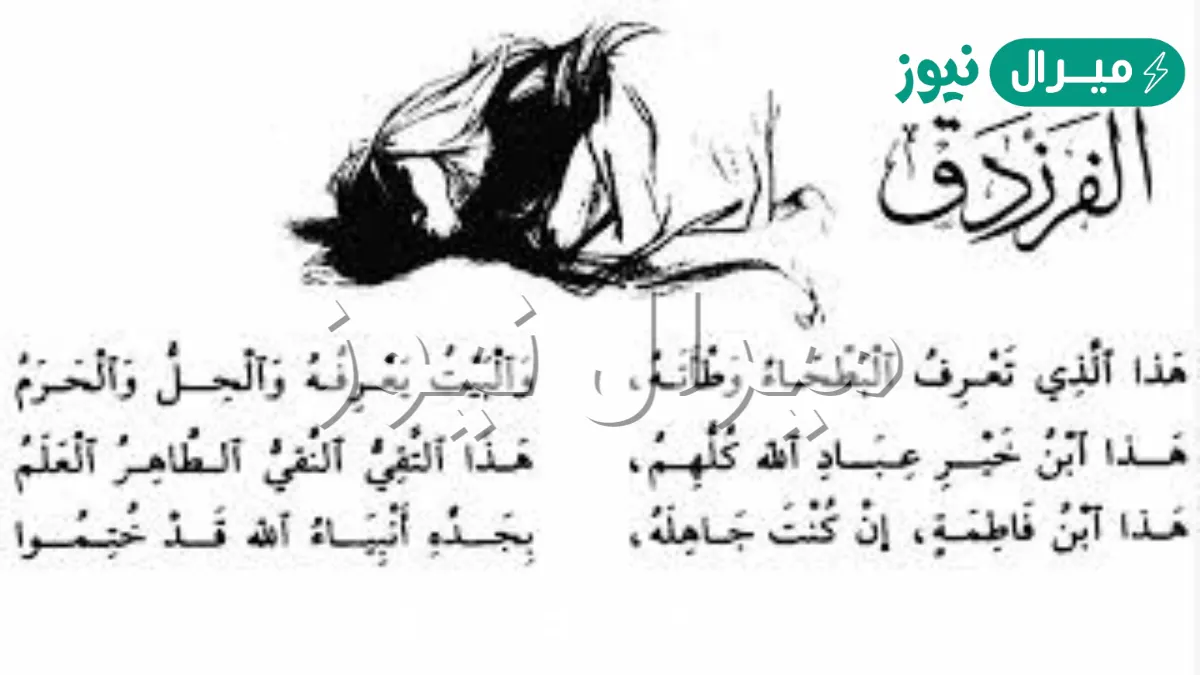 ميرال نيوز
الفَرَزْدَق
هَذا ٱلَّذِي تَعْرِفُ ٱلْبَطْحَاءُ وَطْأَتَهُ، وَٱلْبَيْتُ يَعْرِفُهُ وَٱلْحِلُّ وَٱلْحَرَمُ
هَذا ٱبْنُ خَيْرِ عِبَادِ ٱللَّه كُلِّهِمُ، هَذا ٱلتَّقِيُّ ٱلنَّقِيُّ ٱلطَّاهِرُ ٱلْعَلَمُ
هَذا ٱبْنُ فَاطِمَةٍ، إِنْ كُنْتَ جَاهِلَهُ، بِجَدِّهِ أَنْبِيَاءُ ٱللَّه قَدْ خُتِمُوا
ميرال نيوز